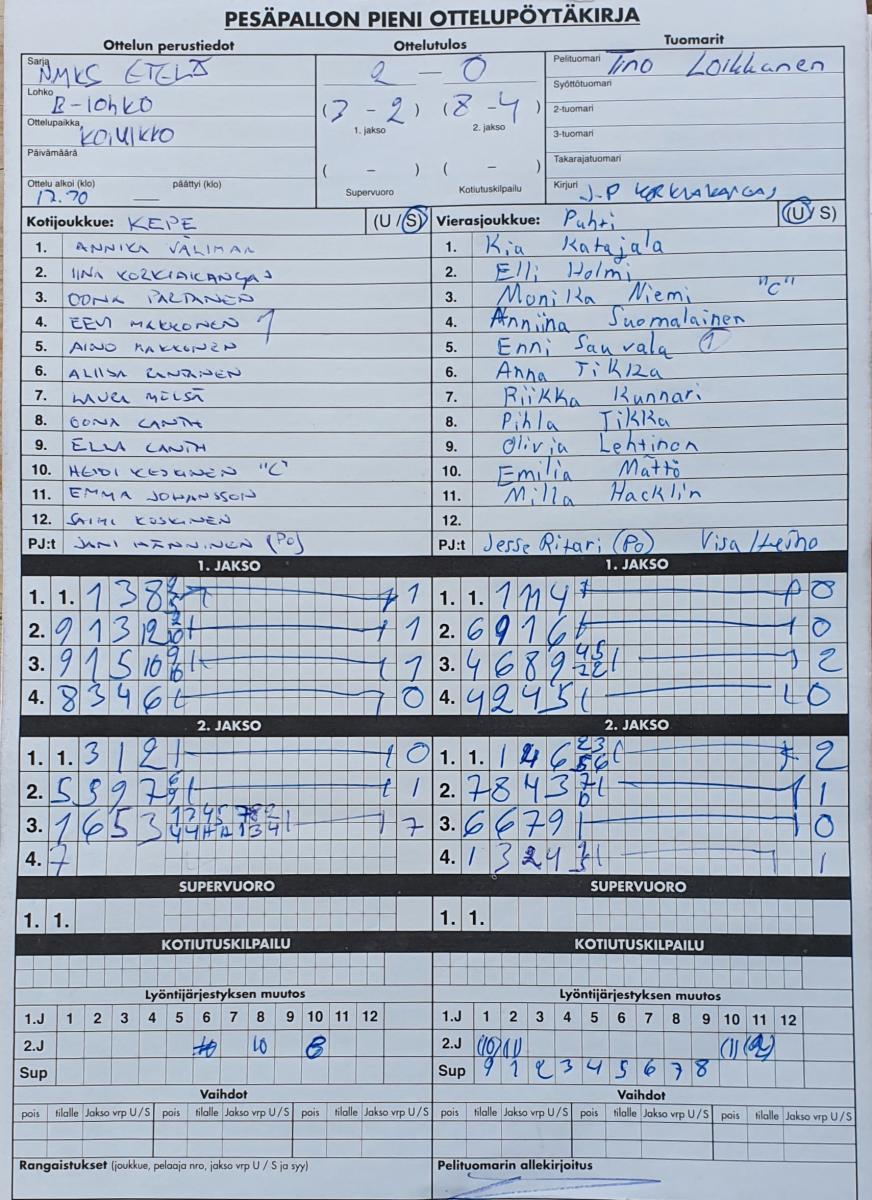 PESÄPALLON PIENI OTTELUPÖYTÄKIRJA
Ottelun perustiedot
Ottelutulos
Tuomarit
Sarja NMKS ETELÄ
2 - 0
Pelituomari Tino Loikkanen
Lohko B-lohko
(3 - 2) (8 - 4)
Syöttötuomari
1. jakso 2. jakso
2-tuomari
Ottelupaikka KOIVIKKO
3-tuomari
Päivämäärä
( - ) ( - )
Takarajatuomari
Ottelu alkoi (klo) päättyi (klo)
Supervuoro Kotiutuskilpailu
Kirjuri J-P KORKIAKANGAS
Kotijoukkue: KEPE (U / S)
Vierasjoukkue: Puhti (U / S)
1. ANNIKA VÄLIMAA
1. Kia Katajala
2. IINA KORKIAKANGAS
2. Elli Holmi
3. OONA PALTANEN
3. Monika Niemi "C"
4. EEVI MAKKONEN 1
4. Anniina Suomalainen
5. AINO MAKKONEN
5. Enni Sauvala 1
6. ALIISA RANTANEN
6. Anna Tikka
7. LAURA MELSÄ
7. Riikka Kunnari
8. OONA CANTH
8. Pihla Tikka
9. ELLA CANTH
9. Olivia Lehtinen
10. HEIDI KESKINEN "C"
10. Emilia Mättö
11. EMMA JOHANSSON
11. Milla Hacklin
12. SAIMI KOSKINEN
12.
PJ:t JANI MÄNNINEN (PO)
PJ:t Jesse Ritari (PO) Visa
1. JAKSO
1. JAKSO
1. 1. 1 3 8 1
1. 1. 1 11 4 0
2. 9 1 3 12 1
2. 6 9 1 6 0
3. 9 1 5 10 1
3. 4 6 8 9 2
4. 8 3 4 6 0
4. 4 2 4 5 0
2. JAKSO
2. JAKSO
1. 1. 3 1 2 0
1. 1. 1 4 6 2
2. 5 5 9 7 1
2. 7 8 4 3 1
3. 1 6 5 3 7
3. 6 6 7 9 0
4. 7
4. 1 3 2 4 1
SUPERVUORO
SUPERVUORO
1. 1.
1. 1.
KOTIUTUSKILPAILU
KOTIUTUSKILPAILU
Lyöntijärjestyksen muutos
Lyöntijärjestyksen muutos
1.J 1 2 3 4 5 6 7 8 9 10 11 12
1.J 1 2 3 4 5 6 7 8 9 10 11 12
2.J 10 8
2.J (10) (11) (1) (2)
Sup
Sup 9 1 2 3 4 5 6 7 8
Vaihdot
Vaihdot
pois tilalle Jakso vrp U / S pois tilalle Jakso vrp U / S pois tilalle Jakso vrp U / S
pois tilalle Jakso vrp U / S pois tilalle Jakso vrp U / S pois tilalle Jakso vrp U / S
Rangaistukset (joukkue, pelaaja nro, jakso vrp U / S ja syy)
Pelituomarin allekirjoitus